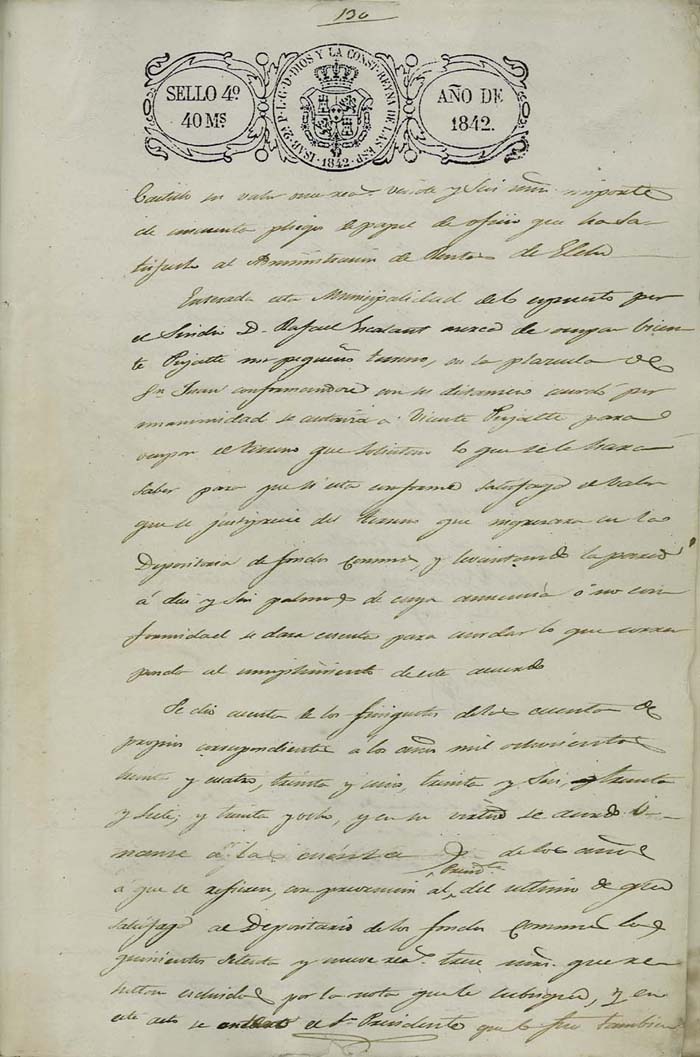 130
SELLO 4º
40 Mˢ
ISAB. 2ª P. L. G. D. DIOS Y LA CONST. REYNA DE LAS ESP.
1842
AÑO DE
1842.
Castillo su valor once reaˢ. veinte y seis mrs. importe
de cincuenta pliegos de papel de oficio que ha sa-
tisfecho al Administracion de Rentas de Elche
Enterada esta Municipalidad del espuesto por
el Sindico D. Rafael acerca de ocupar Vicen-
te Pujalte un pequeño terreno, en la plazuela de
Sn Juan conformandose con su dictamen acordó por
unanimidad se autorice a Vicente Pujalte para
ocupar el terreno que solicita lo que se le hara
saber para que si esta conforme satisfaga el valor
que se justiprecie del terreno que ingresara en la
Depositaria de fondos Comunes, y levantando la pared
á diez y seis palmos de cuya anuencia ó no con
formidad se dara cuenta para acordar lo que corres
ponda al cumplimiento de este acuerdo
Se dio cuenta de los finiquitos de las cuentas de
propios correspondientes a los años mil ochocientos
treinta y cuatro, treinta y cinco, treinta y seis, treinta
y siete, y treinta y ocho, y en su virtud se acordo u-
nanse á las cuentas de los años
á que se refieren, con prevencion al del ultimo de que
satisfaga al Depositario de los fondos Comunes los
quinientos setenta y nueve reaˢ. trece mrs. que re
sultan escluidos por la nota que le subsigue, y en
este acto se el Sr. Presidente que lo fue tambien